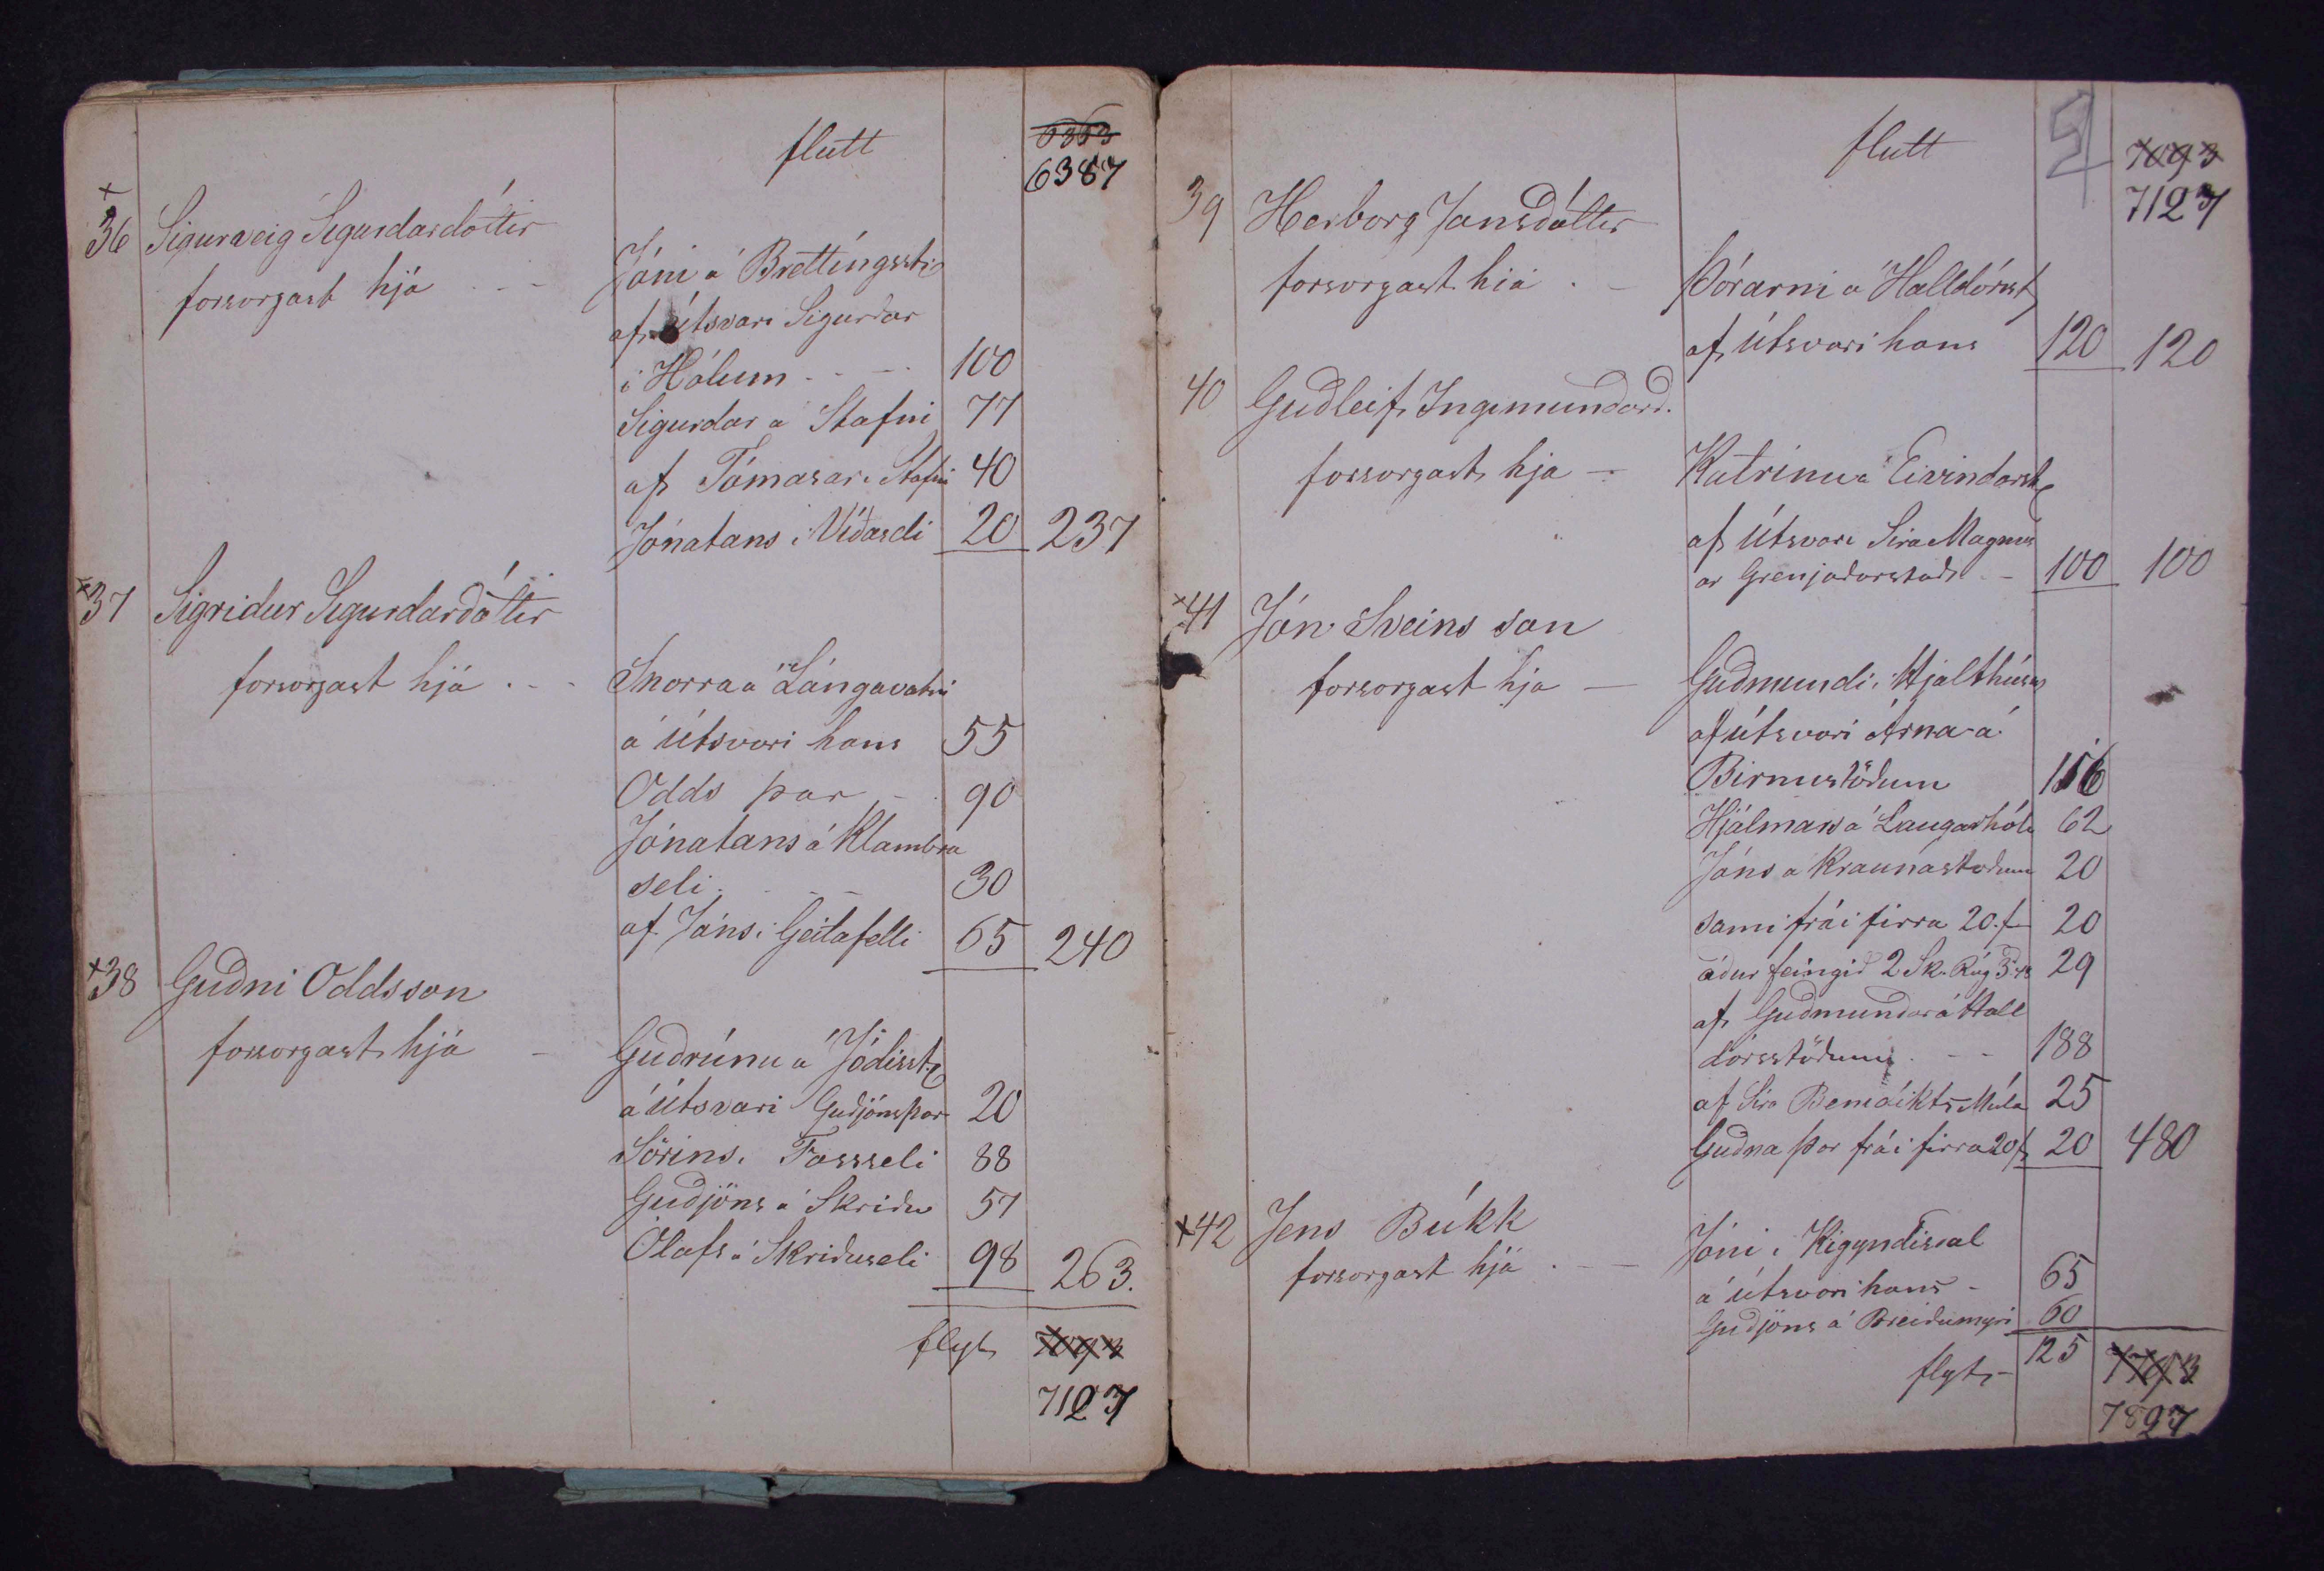 flutt 6353
6387
+
36 Sigurveig Sigurdardóttir
forsorgast hjá - - Jóni á Brettíngsst
af Útsvari Sigurdar
í Hólum - - - 100
Sigurdar á Stafni 77
af Tómasar í Stafni 40
Jónatans í Víðaseli 20 237
+37 Sigridur Sigurdardóttir
forsorgast hjá . - - Snorra á Lángavatni
á útsvari hans 55
Odds þar - 90
Jónatans á Klambra
seli . - - 30
af Jóns í Geitafelli 65 240
+38 Gudni Oddsson
forsorgast hjá - Gudrúnu á Jódísst
á Útsvari Gudjóns þar 20
Sörins í Fossseli 88
Gudjóns á Skridu 57
Olafs á Skriduseli 98 263.
flyt 7093
7127
flutt 7093
7127
39 Herborg Jonsdóttir
forsorgast hiá . - Þórarni á Halldórsst
af Útsvari hans 120 120
40 Gudleif Ingimundard.
forsorgast hja - Katrinu á Eivindarst
af Útsvari Sira Magnus
ar Grenjadarstad - 100 100
+41 Jón Sveins son
forsorgast hja - Gudmundi í Hjalthúsum
af útsvari Árna á
Birnustödum 116
Hjálmars á Laugarhól 62
Jóns á Kraunastodum 20
sami frá i firra 20 f 20
ádur feingid 2 Sk. Rúg 29
af Gudmundar á Hall
dórsstödum . - - 188
af Sira Benidikts Múla 25
Gudna þar frá i firra 20 f 20 480
+42 Jens Búkk Jóni í
forsorgast hjá . - - á útsvari hans - 65
Gudjóns á Breidumýri 60
125
flyt - 7793
7827